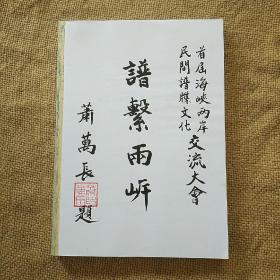 首屆海峽兩岸
民間譜牒文化
交流大會
譜繫兩岸
蕭萬長題